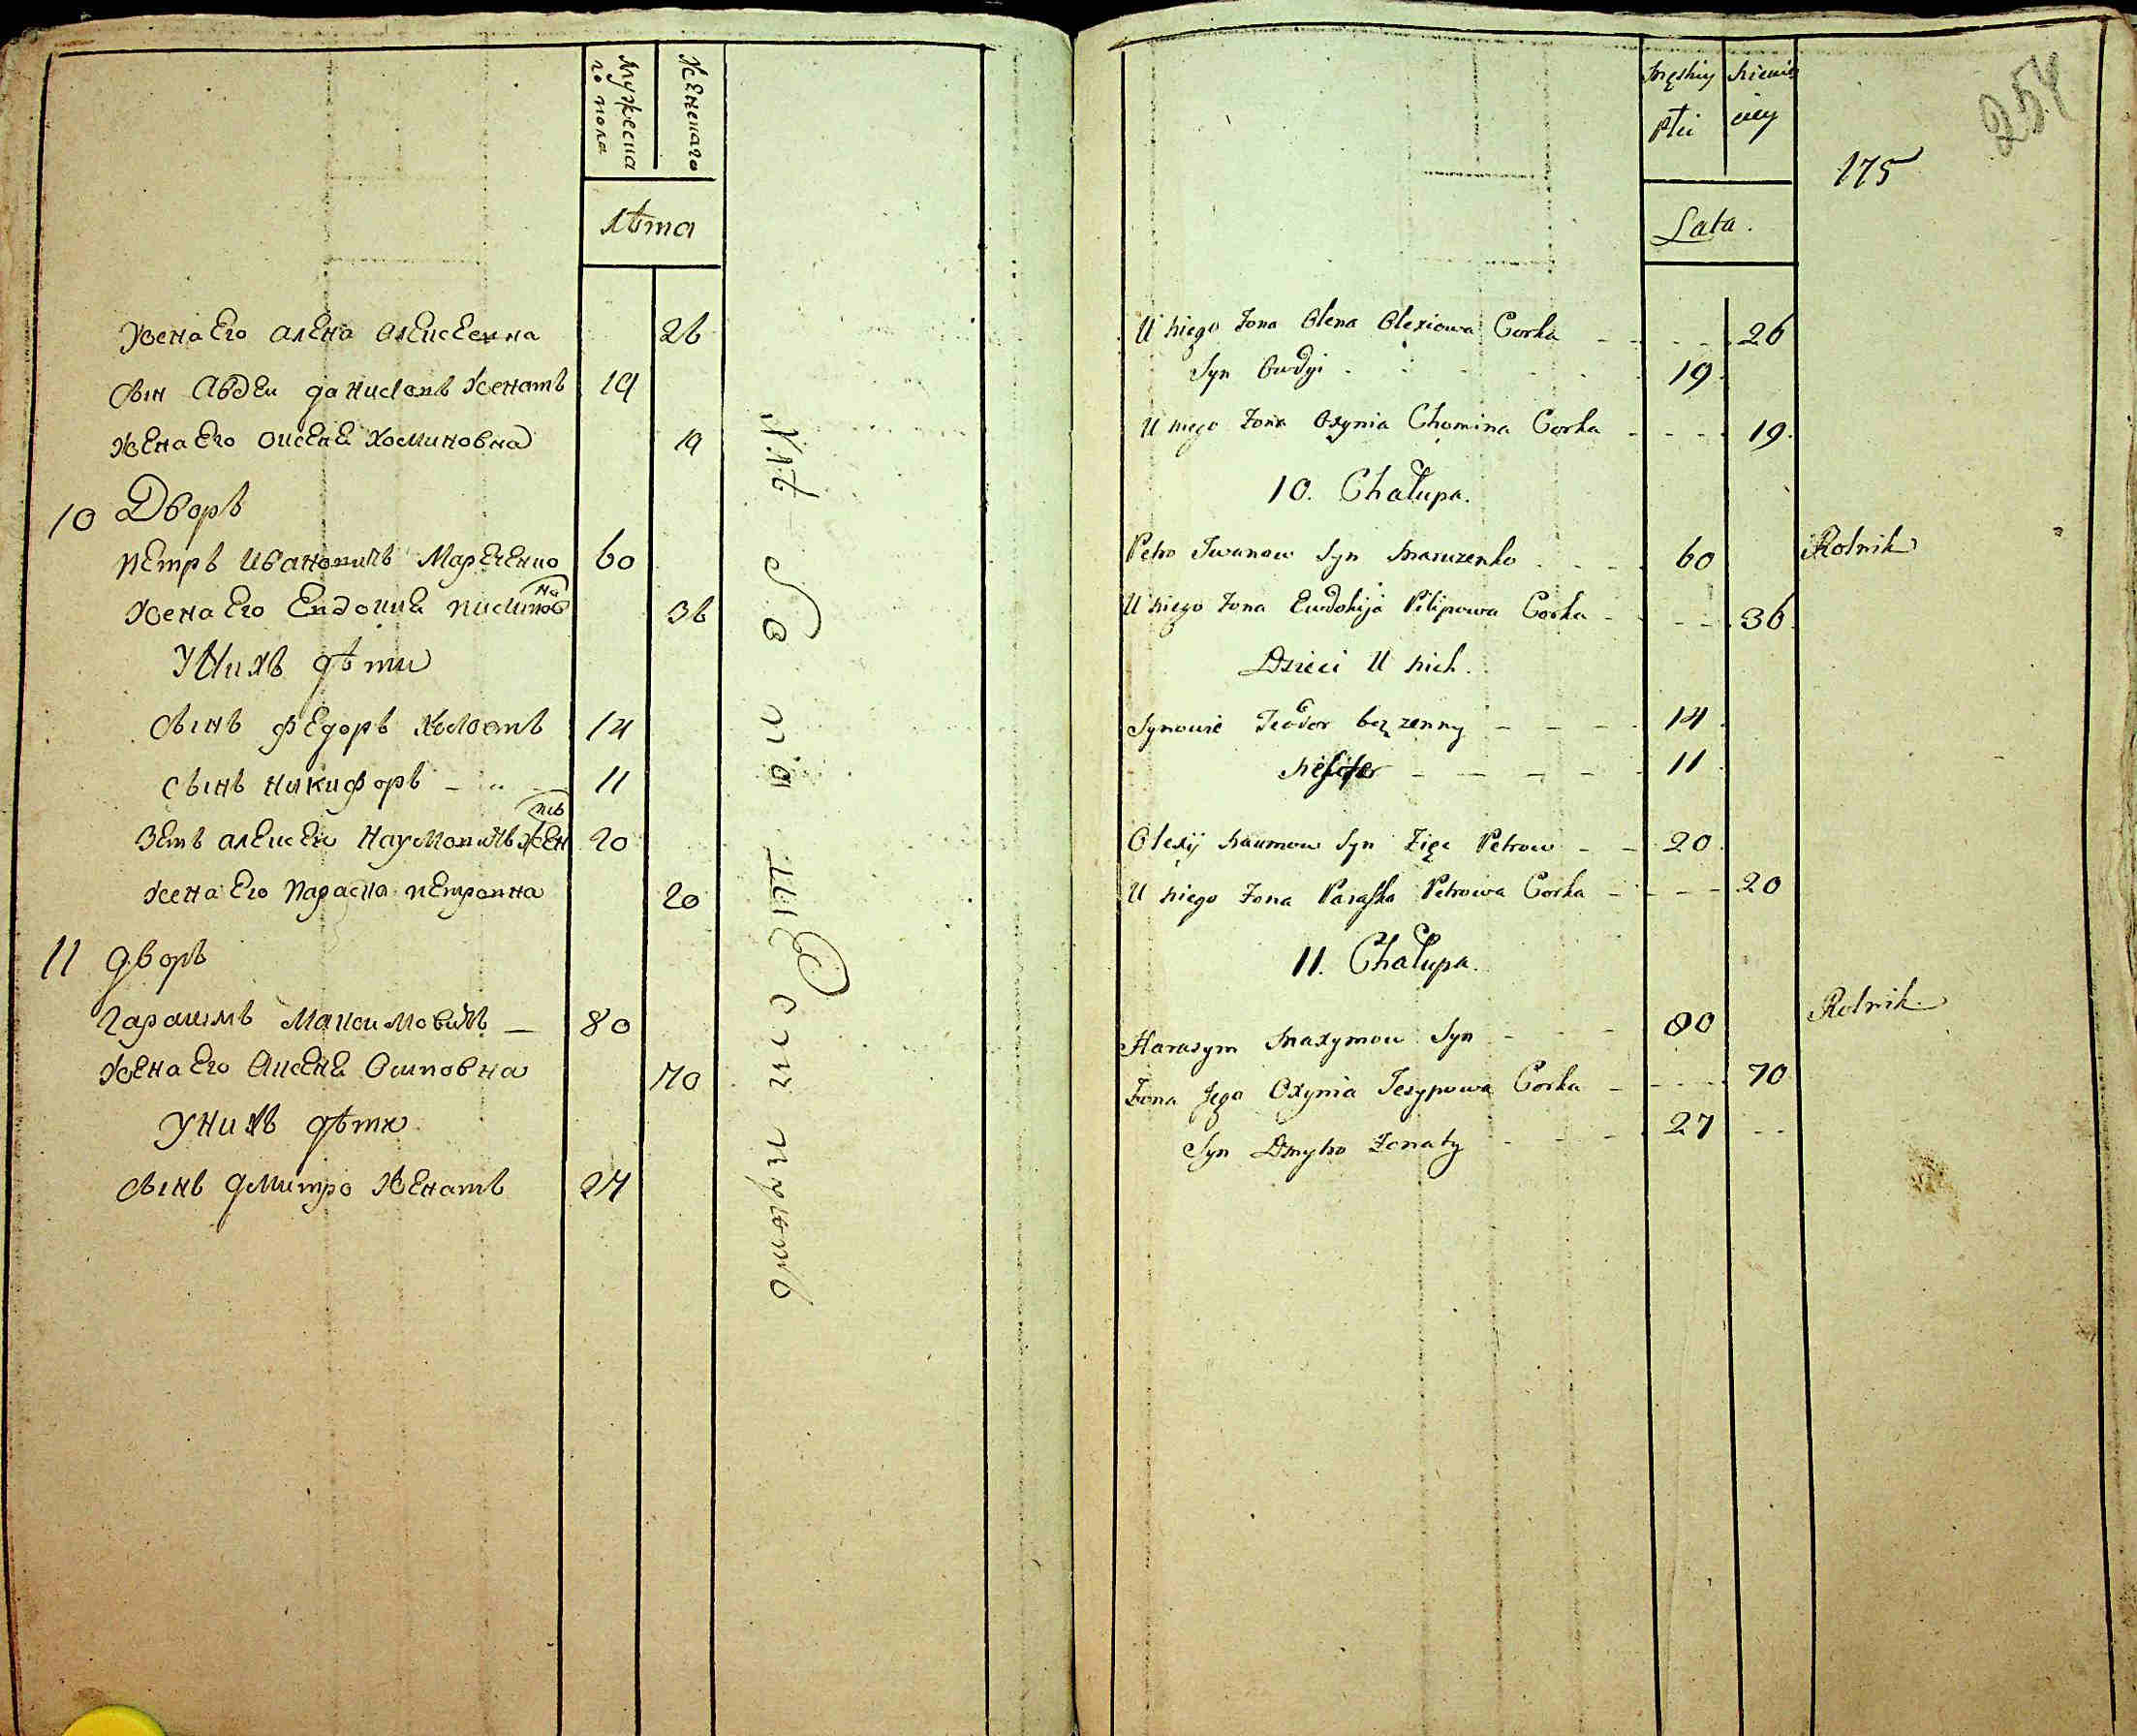 Мужеска
го пола
Женскаго
Лѣта
Жена Его алЕна алЕксЕевна 26
Сын АвдЕи даниловъ Женатъ 19
ЖЕна Его оксЕнЕ Хоминовна 19
10 Дворъ
пЕтръ Ивановичъ МарчЕнко 60
Жена Его ЕвдокиЕ пилипов
на 36
У Нихъ дѣти
Сынъ фЕдоръ Холостъ 14
Сынъ Никифоръ 11
ЗЕтъ алЕксЕи Наумовичъ жЕн
20
Жена Его Параска пЕтровна 20
11 дворъ
гарашмъ Максимовичъ 80
ЖЕна Его ОксЕнЕ Осиповна 70
У Нихъ дѣти
Сынъ дмитро ЖЕнатъ 27
Męskiy
Płci
254
175
Lata.
U niego Żona Olena Olexiowa Corka 26
Syn Owdyi 19
U niego Żona Oxynia Chomina Corka 19
10. Chałupa.
Petro Iwanow Syn Marczenko 60 Rolnik
U niego Żona Ewdokija Pilipowa Corka 36
Dzieci U nich.
Synowie Teodor bez zenny 14
11
Olexij Naumow Syn Zięc Petrow 20
U niego Żona Paraska Petrowa Corka 20
11. Chałupa.
Harasym Maxymow Syn 80 Rolnik
Żona Jego Oxynia Jesypowa Corka 70
Syn Dmytro Żonaty 27